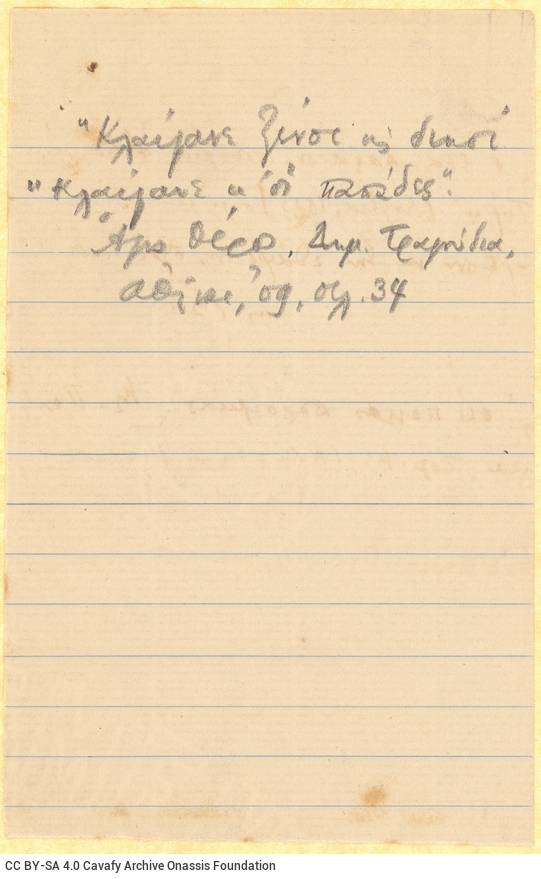 "Κλαίγανε ξένοι κ̀ς δικοί
"Κλαίγανε κ' οἱ παπάδες".
Ἄγις Θέρο, Δημ. Τραγούδια,
Ἀθῆναι, '09, σελ. 34
CC BY-SA 4.0 Cavafy Archive Onassis Foundation